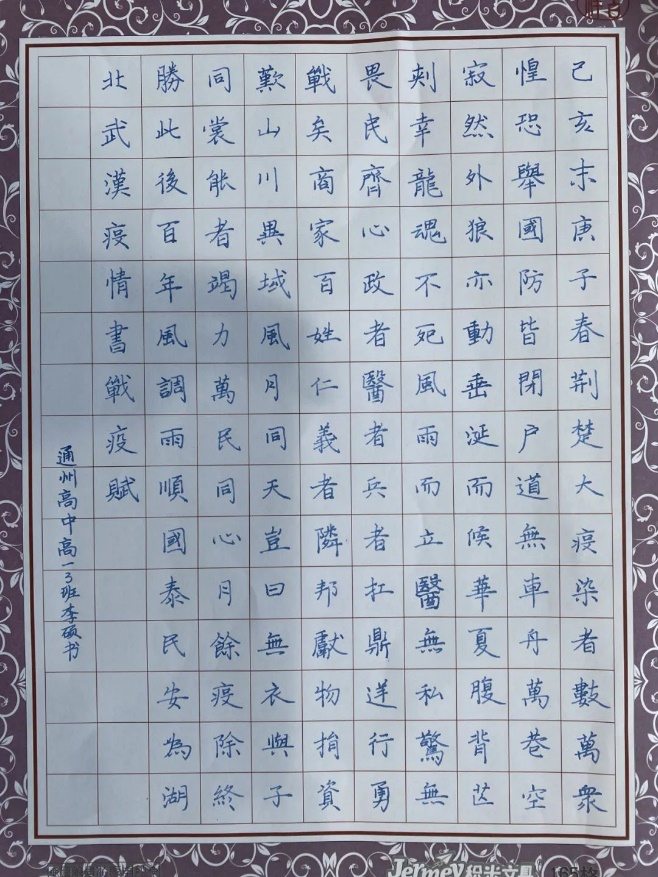 己亥末庚子春荊楚大疫染者數萬眾
惶恐舉國防皆閉戶道無車舟萬巷空
寂然外狼亦動垂涎而候華夏腹背芒
刺幸龍魂不死風雨而立醫無私驚無
畏民齊心政者醫者兵者扛鼎逆行勇
戰矣商家百姓仁義者隣邦獻物捐資
歎山川異域風月同天豈曰無衣與子
同裳能者竭力萬民同心月餘疫除終
勝此後百年風調雨順國泰民安為湖
北武漢疫情書戰疫賦
通州高中高一3班李硕书
文具 165格